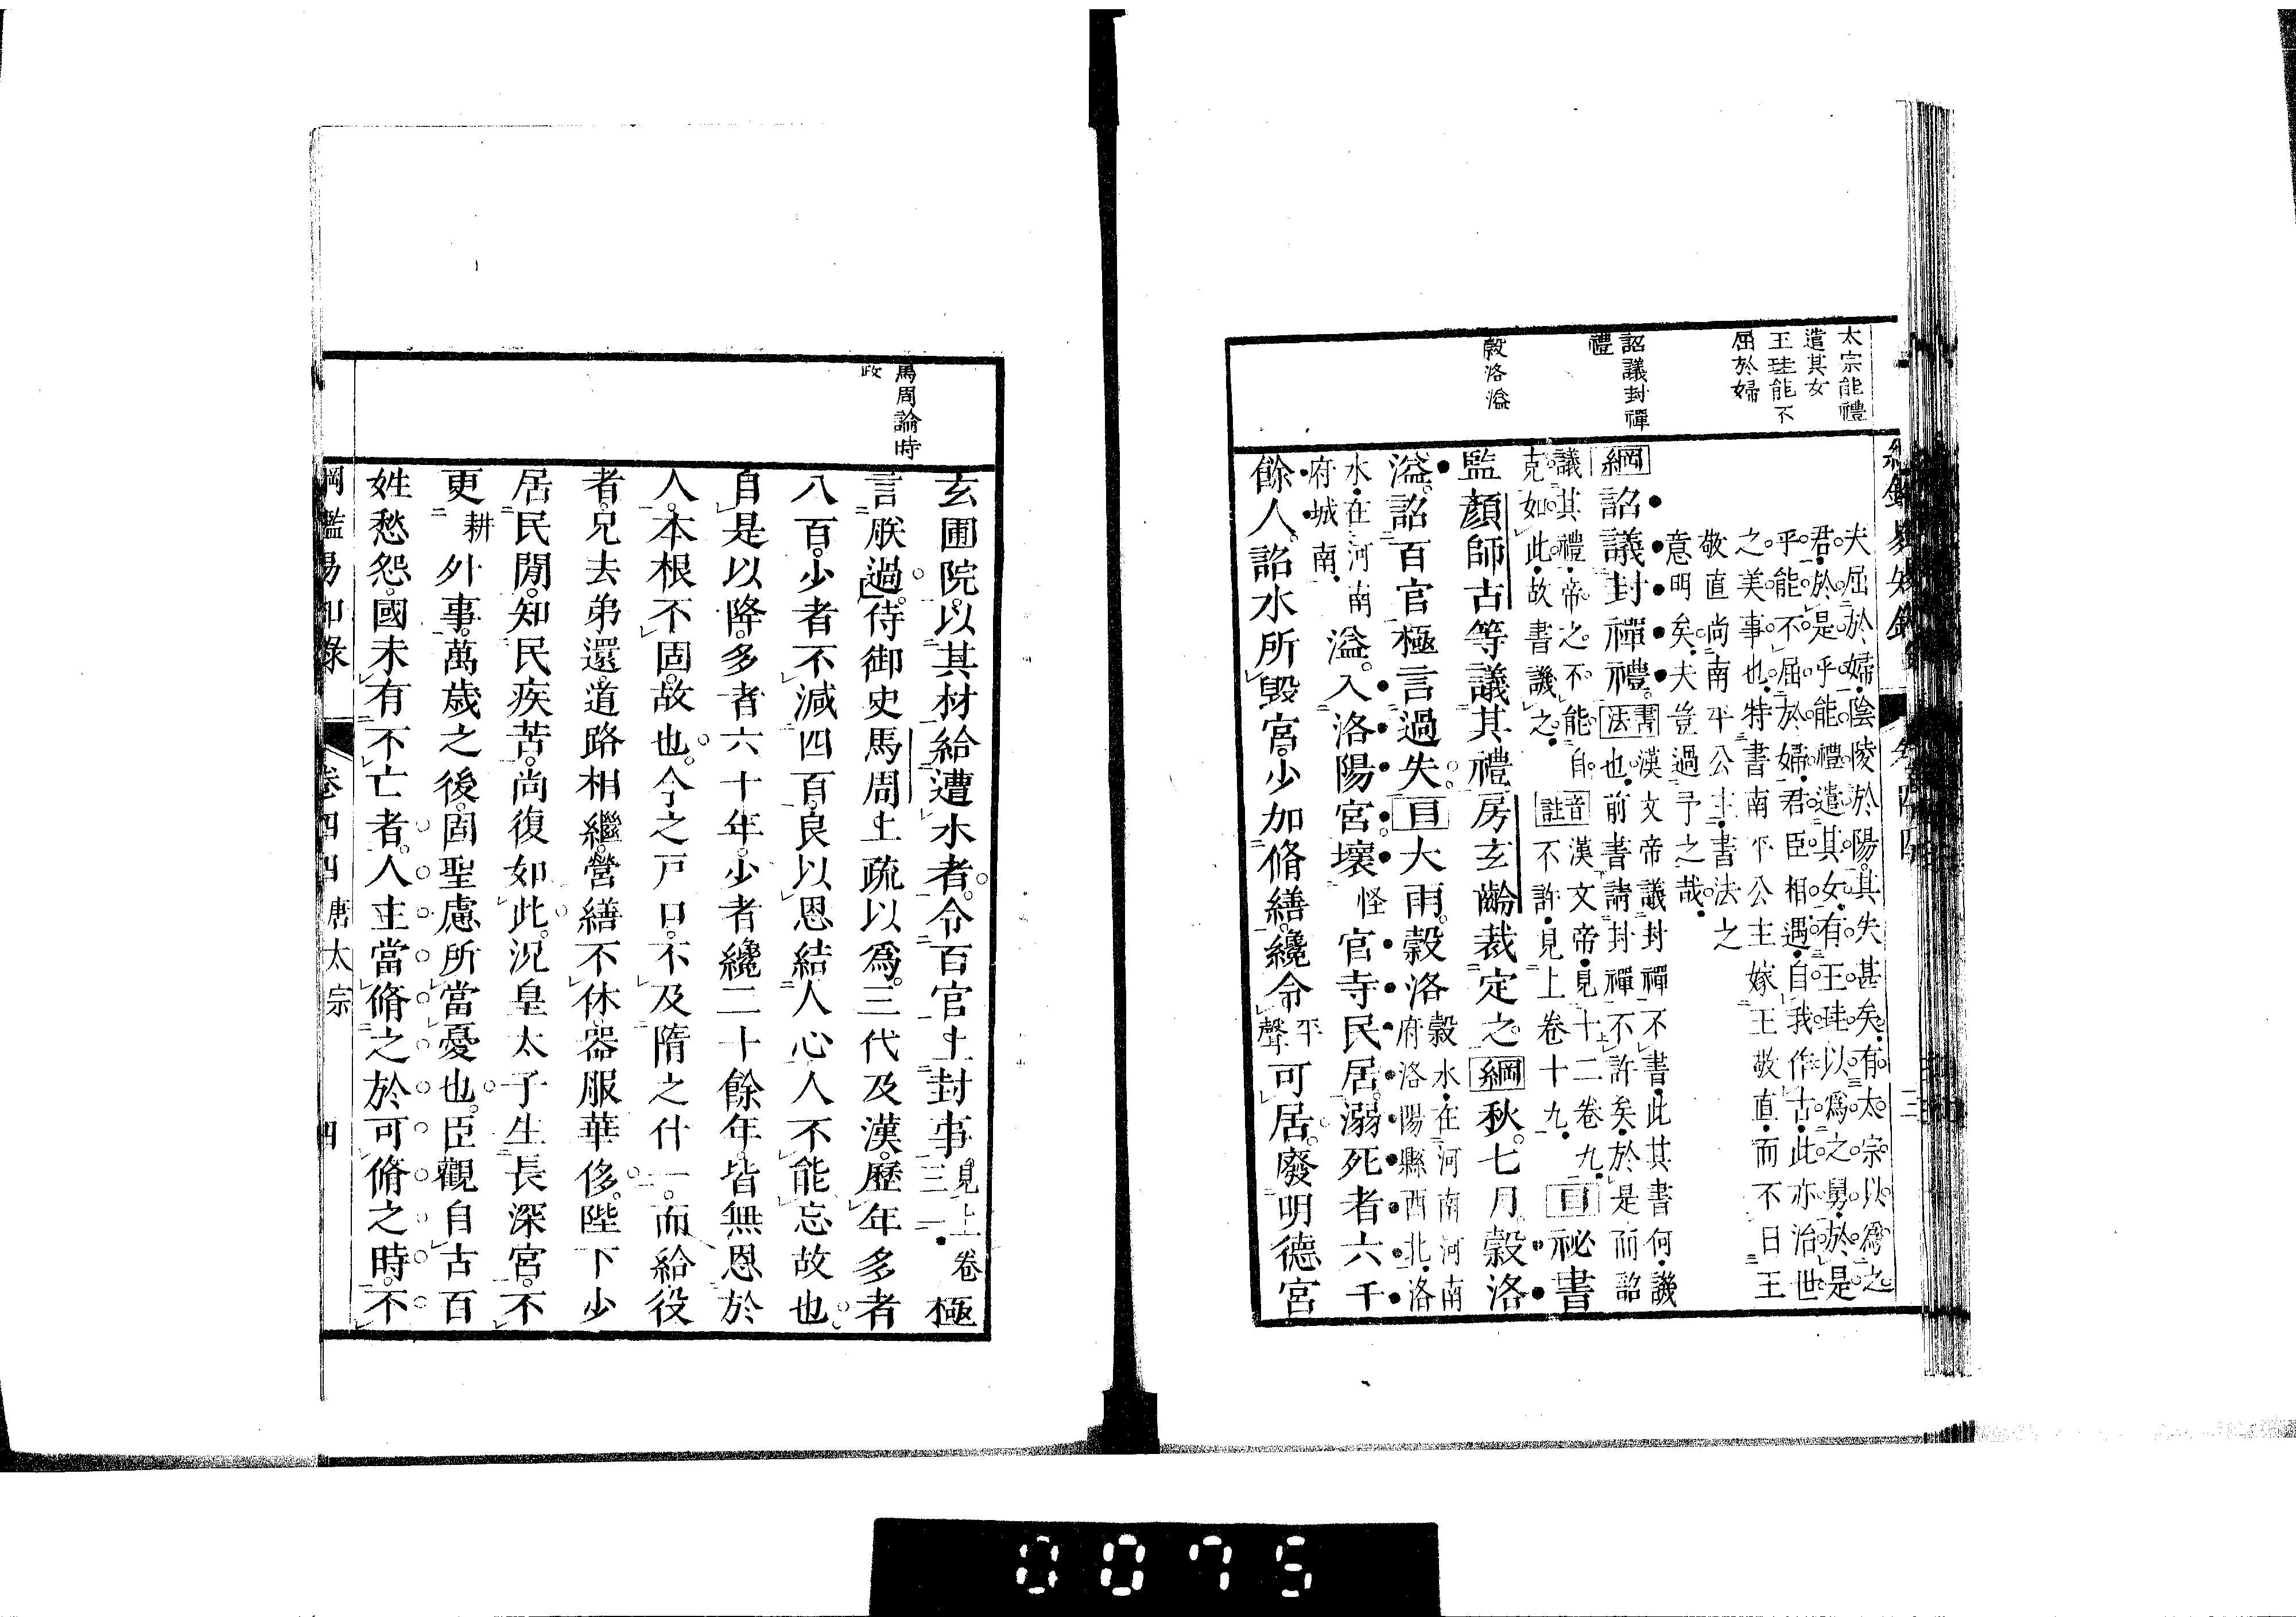 太宗能禮
遣其女
王珪能不
屈於婦
詔議封禪
禮
穀洛溢
夫屈於婦陰陵於陽其失甚矣有太宗以爲之
君於是乎能禮遣其女有王珪以爲之舅於是
乎能不屈於婦君臣相遇自我作古此亦治世
之美事也特書南平公主嫁王敬直而不曰王
敬直尚南平公主書法之
意明矣夫豈過予之哉
綱詔議封禪禮
書法漢文帝議封禪不書此其書何譏
也前書請封禪不許矣於是而詔
議其禮帝之不能自
克如此故書譏之
音註漢文帝見十二卷九
不許見上卷十九
目祕書
監顏師古等議其禮房玄齡裁定之綱秋七月穀洛
溢詔百官極言過失目大雨穀洛
穀水在河南河南
府洛陽縣西北洛
水在河南
府城南
溢入洛陽宮壞
怪
官寺民居溺死者六千
餘人詔水所毀宮少加脩繕纔令
平
聲
可居廢明德宮
馬周論時
政
玄圃院以其材給遭水者令百官上封事
見上卷
三一
極
言朕過侍御史馬周上疏以爲三代及漢歷年多者
八百少者不減四百良以恩結人心人不能忘故也
自是以降多者六十年少者纔二十餘年皆無恩於
人本根不固故也今之戸口不及隋之什一而給役
者兄去弟還道路相繼營繕不休器服華侈陛下少
居民閒知民疾苦尚復如此況皇太子生長深宮不
更
耕
外事萬歲之後固聖慮所當憂也臣觀自古百
姓愁怨國未有不亡者人主當脩之於可脩之時不
綱鑑易知錄 卷四四 唐太宗 四